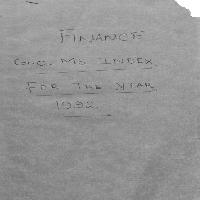 FINANCE
MS INDEX
FOR THE YEAR
1932